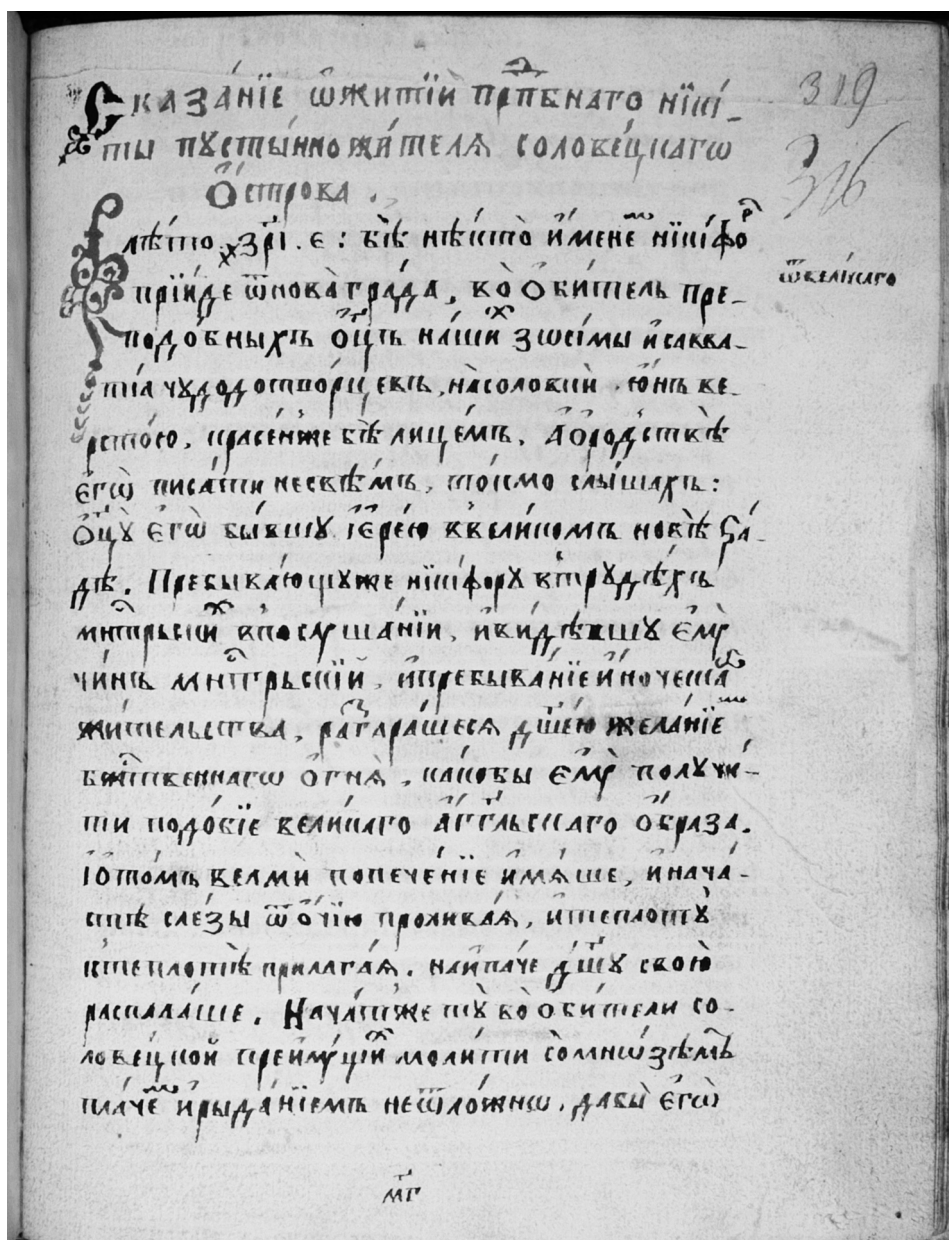 Сказа́нїе ѡ҆житїѝ прпⷣбнаго нїки́-
ты пꙋсты́нножи́телѧ солове́цкагѡ
О҆́строва.
лѣто ҂зр҃і. є҃: бѣ̀ нѣ́кто и҆́менеⷨ нїки́фоⷬ
прїи́де ѿнова̀гра́да, во ѻ҆би́тель пре-
подо́бныхъ ѻ҆ц҃ъ на́шиⷯ зѡсі́мы и҆савва-
тїа чꙋдодотво́рцевъ, насоловкѝ. ю҆́нъ ве-
рсто́ю, кра́сенже бѣ̀ лице́мъ. А҆ѻ҆ро́дствѣ
є҆гѡ̀ писа́ти несвѣ́мъ, то́кмо слы́шахъ:
ѻ҆ц҃ꙋ̀ є҆гѡ̀ бы́вшꙋ і҆ере́ю ввели́комъ но́вѣ гра́-
дѣ. Пребыва́ющꙋже нїки́форꙋ втрꙋдѣ́хъ
мнⷭ҇тры́рскиⷯ впослꙋша́нїи, и҆ви́дѣвшꙋ є҆мꙋ̀
чи́нъ мнⷭ҇тры́рскїй, и҆пребыва́нїе и҆́ноческаⷢ҇
жи́тельства, разгара́шесѧ дш҃е́ю жела́нїеⷨ
бж҃е́ственнагѡ ѻ҆гнѧ̀, ка́кобы є҆мꙋ̀ полꙋчи́-
ти подо́бїе вели́каго а҆́гг҃льскаго ѻ҆́браза.
І҆ѻ҆то́мъ велмѝ попече́нїе и҆мѧ́ше, и҆нача́-
стѣ сле́зы ѿѻ҆́чїю пролива́ѧ, и҆теплотꙋ̀
ктеплотѣ̀ прилага́ѧ. наипа́че дш҃ꙋ̀ свою̀
распала́ше. Нача́тже тꙋ̀ во ѻ҆би́тели со-
лове́цкой преимꙋ́щиⷯ моли́ти со мно́зѣмъ
пла́чеⷨ и҆рыда́нїемъ неѿло́жнѡ, дабы̀ є҆гѡ̀
мⷢ҇
ѿвели́каго
319
316